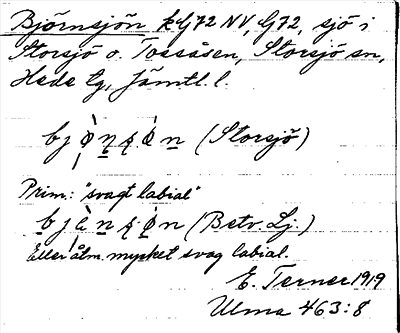 Björnsjön kG72 NV, G72, sjö i
Storsjö o. Tossåsen, Storsjö sn,
Hede tg, Jämtl. l.
(Storsjö)
Prim.: "svagt labial"
(Betv. Lj.)
Eller ålm. mycket svag labial.
E. Terner 1919
Ulma 463:8